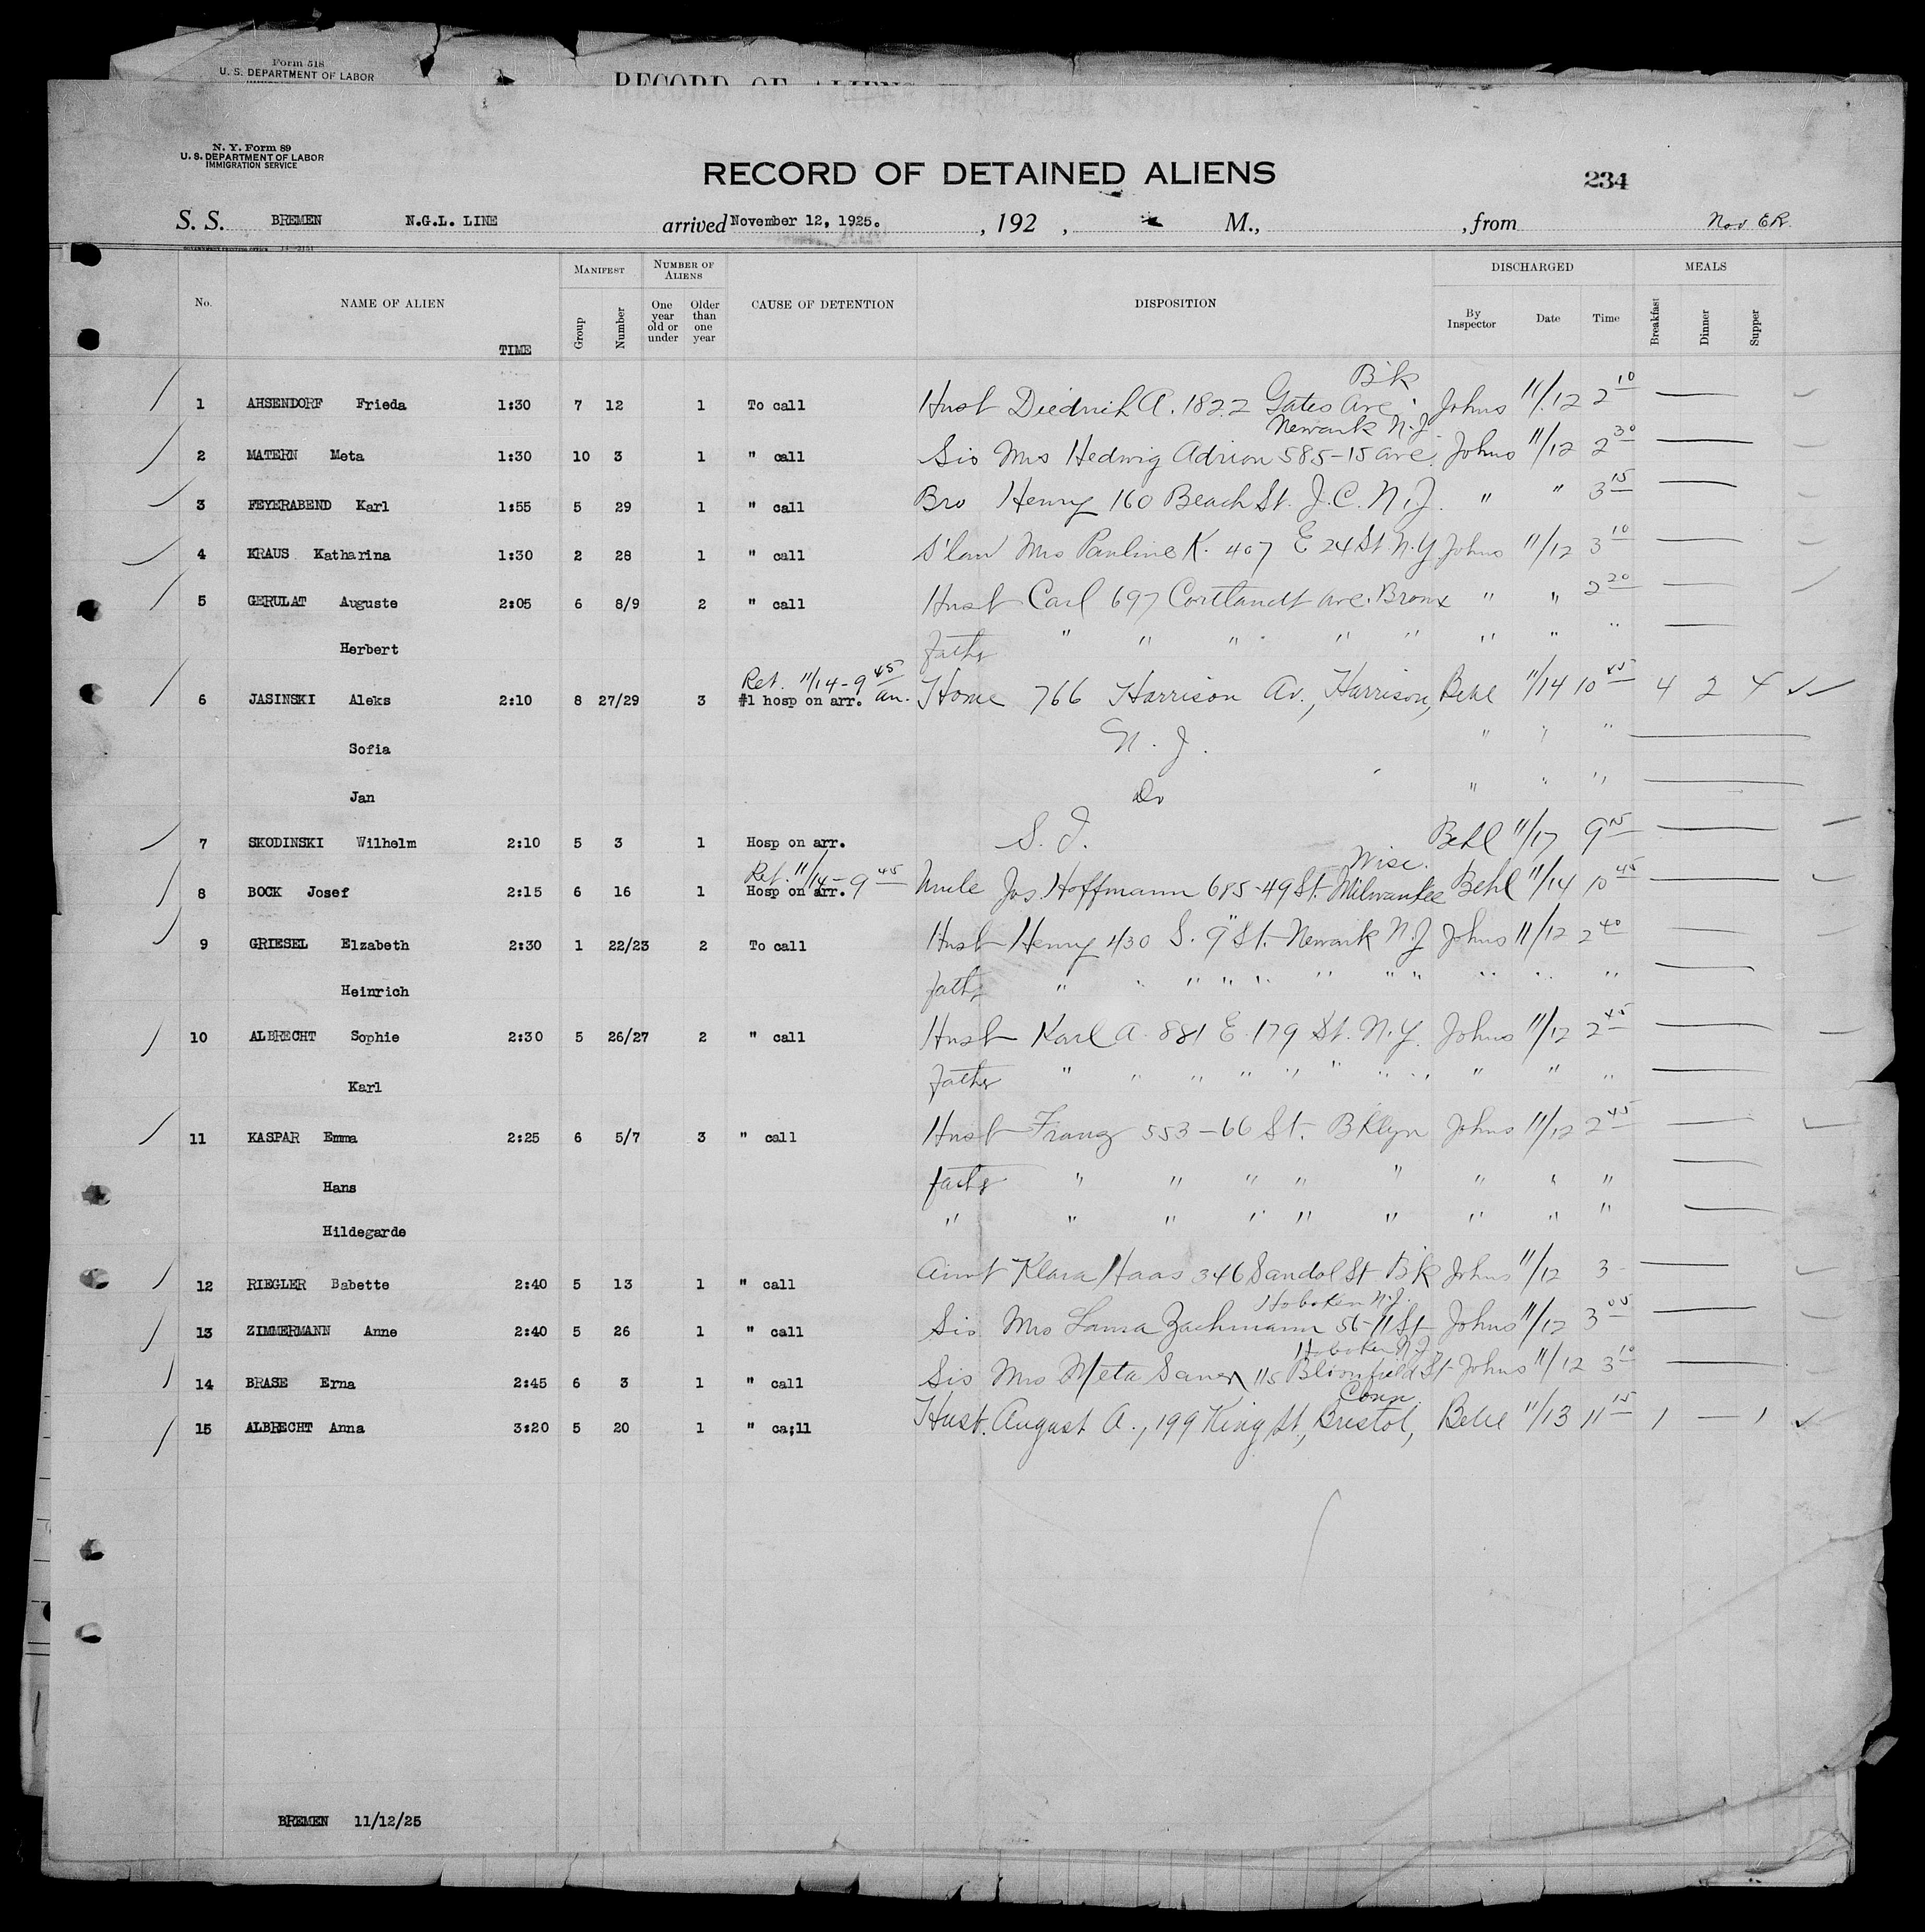 Form 518
U. S. DEPARTMENT OF LABOR
RECORD OF ALIENS
N. Y. Form 89
U. S. DEPARTMENT OF LABOR
IMMIGRATION SERVICE
RECORD OF DETAINED ALIENS
234
S. S. BREMEN N.G.L. LINE arrived November 12, 1925. , 192 , M., , from Nov ER
No. NAME OF ALIEN TIME MANIFEST Group Number NUMBER OF ALIENS One year old or under Older than one year CAUSE OF DETENTION DISPOSITION DISCHARGED By Inspector Date Time MEALS Breakfast Dinner Supper
Bk
1 AHSENDORF Frieda 1:30 7 12 1 To call Husb Diedrich A. 1822 Gates Ave. Johns 11/12 2 10
Newark N.J.
2 MATERN Meta 1:30 10 3 1 " call Sis Mrs Hedwig Adrion 585-15 Ave. Johns 11/12 2 30
3 FEYERABEND Karl 1:55 5 29 1 " call Bro Henry 160 Beach St. J.C. N.J. " " 3 15
4 KRAUS Katharina 1:30 2 28 1 " call S'law Mrs Pauline K. 407 E 24 St N.Y. Johns 11/12 3 10
5 GERULAT Auguste 2:05 6 8/9 2 " call Husb Carl 697 Cortlandt Ave. Bronx " " 2 20
Herbert Father " " " " " " " "
Ret. 11/14-9 45 am.
6 JASINSKI Aleks 2:10 8 27/29 3 #1 hosp on arr. Home 766 Harrison Av., Harrison, Behl 11/14 10 45 4 2 4
Sofia N. J. " " "
Jan Do " " "
7 SKODINSKI Wilhelm 2:10 5 3 1 Hosp on arr. S. I. Behl 11/17 9 15
Ret. 11/14-9 45 Wisc.
8 BOCK Josef 2:15 6 16 1 Hosp on arr. Uncle Jos. Hoffmann 685-49 St. Milwaukee Behl 11/14 10 45
9 GRIESEL Elzabeth 2:30 1 22/23 2 To call Husb Henry 430 S. 9" St. Newark N.J. Johns 11/12 2 40
Heinrich Father " " " " " " " " " " "
10 ALBRECHT Sophie 2:30 5 26/27 2 " call Husb Karl A. 881 E 179 St. N.Y. Johns 11/12 2 45
Karl Father " " " " " " " " " " "
11 KASPAR Emma 2:25 6 5/7 3 " call Husb Franz 553-66 St. Bklyn Johns 11/12 2 45
Hans Father " " " " " " " "
Hildegarde " " " " " " " " "
12 RIEGLER Babette 2:40 5 13 1 " call Aunt Klara Haas 346 Sandol St Bk Johns 11/12 3
Hoboken N.J.
13 ZIMMERMANN Anne 2:40 5 26 1 " call Sis Mrs Laura Zachmann 56-11 St Johns 11/12 3 05
Hoboken N.J.
14 BRASE Erna 2:45 6 3 1 " call Sis Mrs Meta Sauer 115 Bloomfield St Johns 11/12 3 10
Conn.
15 ALBRECHT Anna 3:20 5 20 1 " ca;ll Husb. August A., 199 King St., Bristol, Behl 11/13 11 15 1 — 1
BREMEN 11/12/25